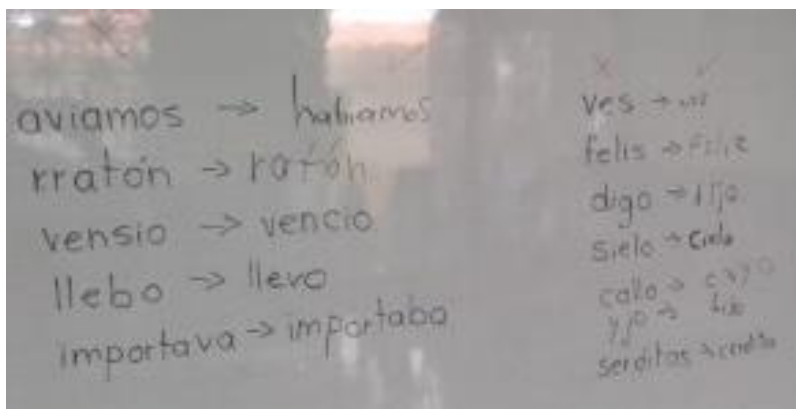 aviamos → habiamos
rratón → ratón
vensio → vencio
llebo → llevo
importava → importaba
ves →
felis →
digo → dijo
sielo → cielo
callo → cayo
yjo →
serditos → cerditos